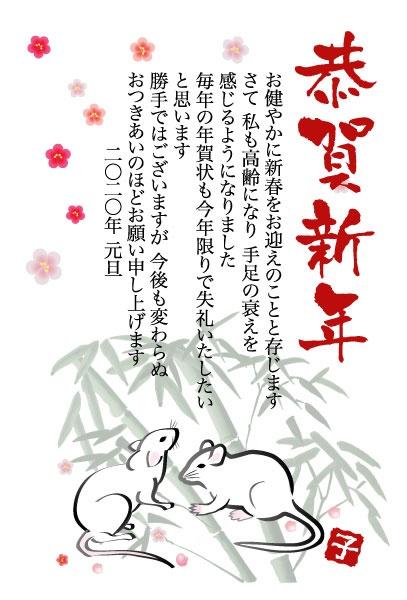 恭賀新年
お健やかに新春をお迎えのことと存じます
さて 私も高齢になり 手足の衰えを
感じるようになりました
毎年の年賀状も今年限りで失礼いたしたい
と思います
勝手ではございますが 今後も変わらぬ
おつきあいのほどお願い申し上げます
二〇二〇年 元旦
子